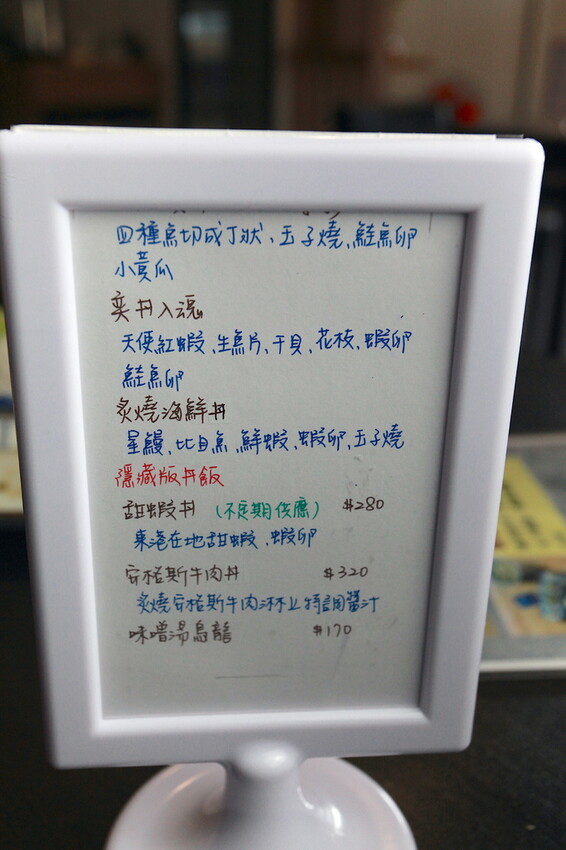 四種魚切成丁狀、玉子燒、鮭魚卵
小黃瓜
奕丼入魂
天使紅蝦、生魚片、干貝、花枝、蝦卵
鮭魚卵
炙燒海鮮丼
星鰻、比目魚、鮮蝦、蝦卵、玉子燒
隱藏版丼飯
甜蝦丼 (不定期供應) $280
東港在地甜蝦、蝦卵
安格斯牛肉丼 $320
炙燒安格斯牛肉淋上特調醬汁
味噌湯烏龍 $170